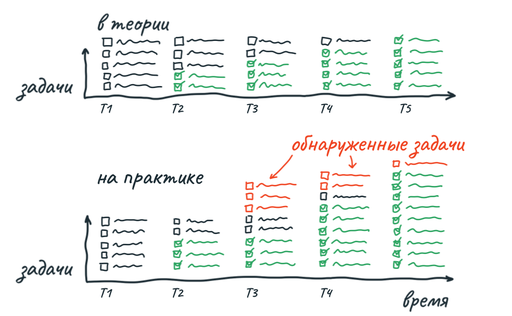 в теории
задачи
T1 T2 T3 T4 T5
обнаруженные задачи
на практике
задачи
T1 T2 T3 T4
время